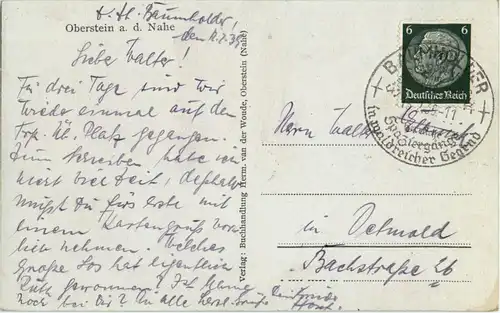 z. Zt. Baumholder,
Oberstein a. d. Nahe
den 12.7.39.
Liebe Walter!
Für drei Tage sind wir
wieder einmal auf den
Trp. Üb. Platz gegangen.
Zum Schreiben habe ich
nicht viel Zeit, deshalb
mußt Du fürs erste mit
einem Kartengruß vor-
lieb nehmen. Welches
Große Los hat eigentlich
gewonnen? Ist
noch bei Dir? Für alle herzl. Grüße
Horst.
Verlag: Buchhandlung Herm. van der Woude, Oberstein (Nahe)
6 6
Deutsches Reich
BAUMHOLDER
Spaziergänge
in waldreicher Gegend
Herrn Walter
in Detmold
Bachstraße 26